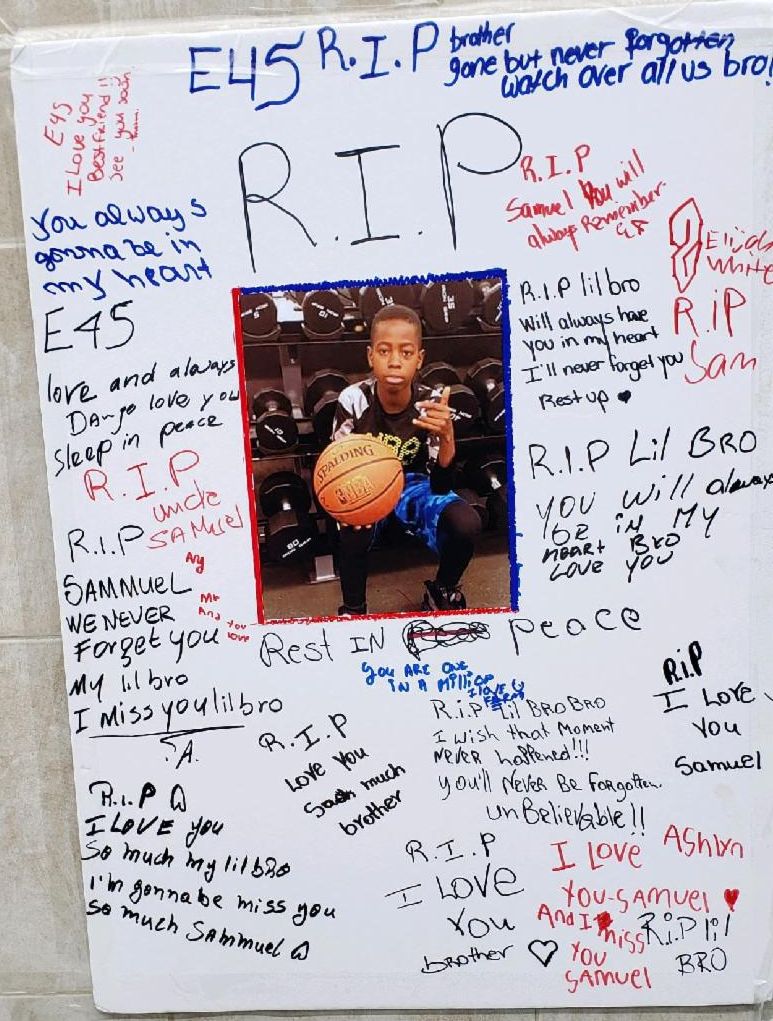 E45 R.I.P brother
gone but never forgotten
watch over all us bro!
E45
I Love you
Bestfriend!!
See you soon
R.I.P
R.I.P
Samuel You will
always Remember.
You always
gonna be in
my heart
E45
White
R.I.P lil bro
Will always have
you in my heart
I'll never forget you
Rest up
R.iP
Sam
love and always
love you
Sleep in peace
R.I.P
uncle
SAMuel
SPALDING
R.I.P Lil BRO
YOU will always
BE iN MY
HEART BRO
LOVE YOU
R.I.P
SAMMUEL
WE NEVER
Forget you
My lil bro
I Miss you lil bro
.A.
And you
love
Rest IN peace
YOU ARE ONE
IN A Million
I LOVE U
R.i.P Lil BRO BRO
I wish that Moment
NEVER happened!!!
you'll Never Be Forgotten.
unBelievable!!
R.i.P
I Love
You
Samuel
R.I.P
Love You
much
brother
R.I.P
I LOVE you
So much my lil bro
I'm gonna be miss you
so much Sammuel
R.I.P
I LOVE
You
brother
I Love Ashlyn
You-Samuel
And I miss
You
Samuel
R.i.P lil
BRO